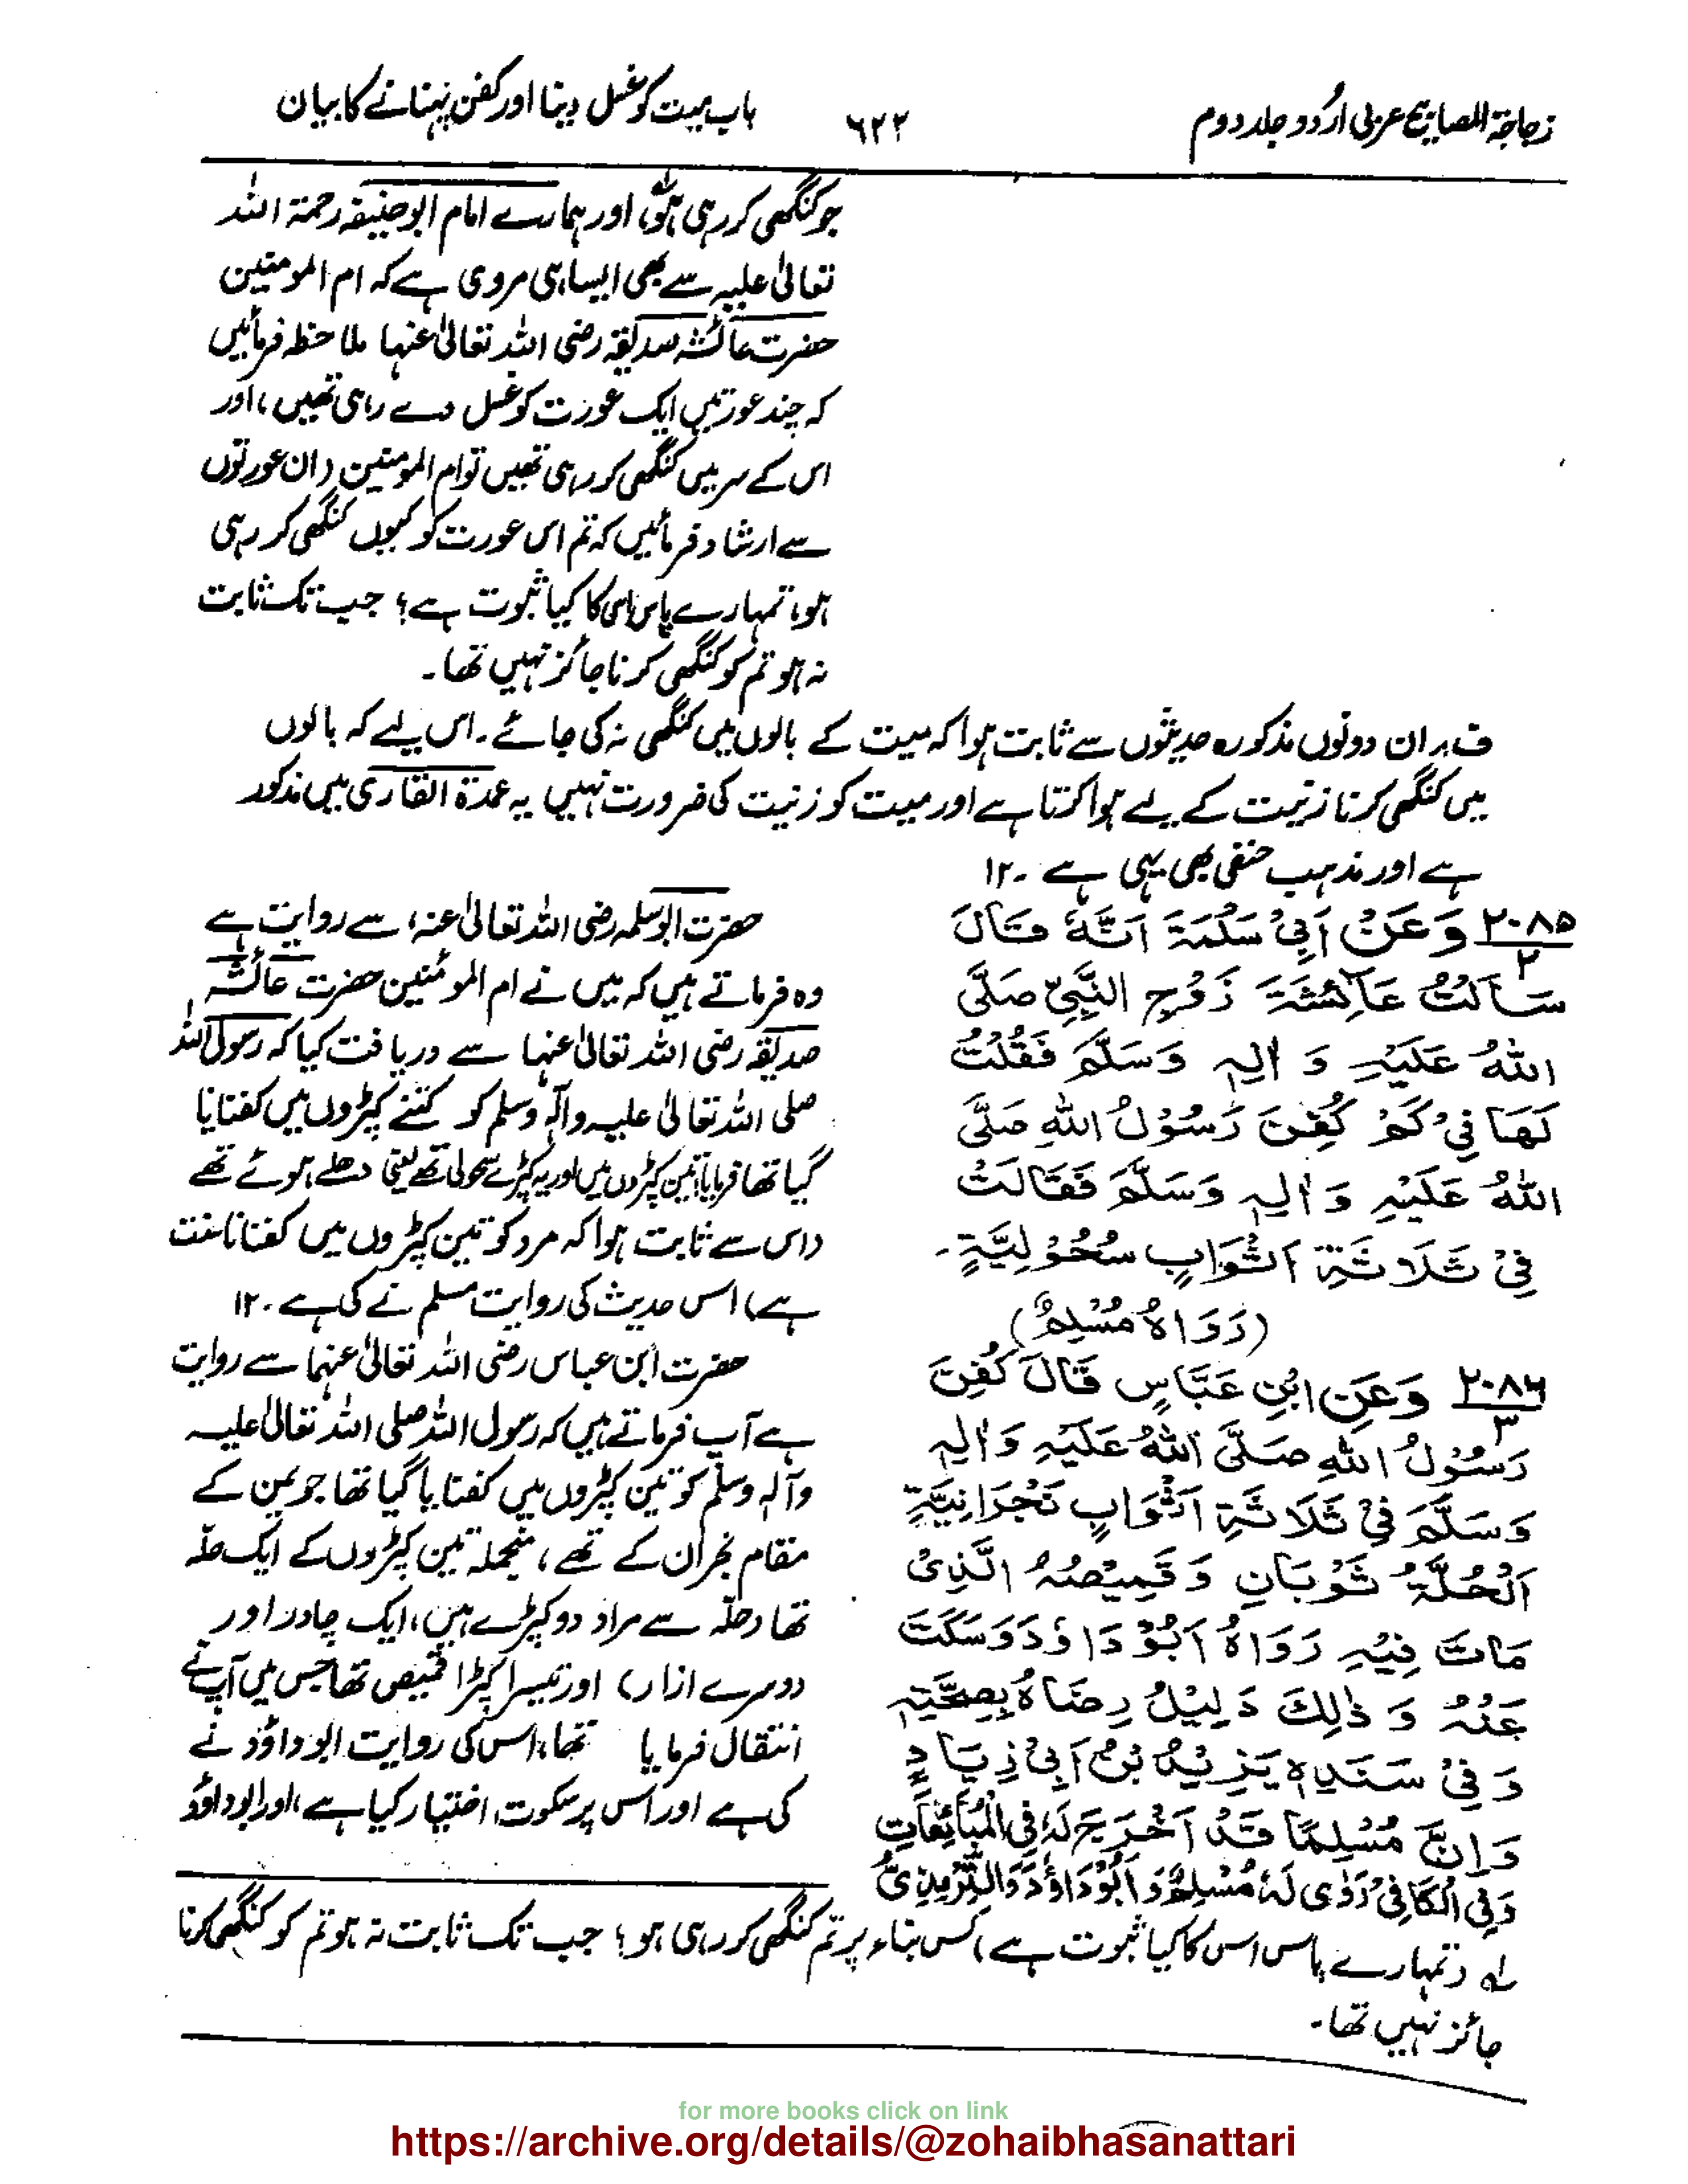 زجاجۃ المصابیح عربی اُردو جلد دوم
٦٢٢
باب میت کو غسل دینا اور کفن پہنانے کا بیان
جو کنگھی کر رہی ہو، لہ اور ہمارے امام ابوحنیفہ رحمۃ اللہ
تعالیٰ علیہ سے بھی ایسا ہی مروی ہے کہ ام المومنین
حضرت عائشہ صدیقہ رضی اللہ تعالیٰ عنہا ملاحظہ فرمائیں
کہ چند عورتیں ایک عورت کو غسل دے رہی تھیں، اور
اس کے سر میں کنگھی کر رہی تھیں تو ام المومنین (ان عورتوں
سے ارشاد فرمائیں کہ تم اس عورت کو کیوں کنگھی کر رہی
ہو، تمہارے پاس اس کا کیا ثبوت ہے؟ جب تک ثابت
نہ ہو تم کو کنگھی کرنا جائز نہیں تھا۔
ف؍ ان دونوں مذکورہ حدیثوں سے ثابت ہوا کہ میت کے بالوں میں کنگھی نہ کی جائے۔ اس لیے کہ بالوں
میں کنگھی کرنا زینت کے لیے ہوا کرتا ہے اور میت کو زینت کی ضرورت نہیں یہ عمدۃ القاری میں مذکور
ہے اور مذہب حنفی بھی یہی ہے ۔۱۲
٢٠٨٥ وَعَنْ اَبِیْ سَلْمَۃَ اَنَّہٗ قَالَ
٢
سَاَلْتُ عَائِشَۃَ زَوْجِ النَّبِیِّ صَلَّی
اللہُ عَلَیْہِ وَ اٰلِہٖ وَسَلَّمَ فَقُلْتُ
لَھَا فِیْ کَمْ کُفِنَ رَسُوْلُ اللہِ صَلَّی
اللہُ عَلَیْہِ وَاٰلِہٖ وَسَلَّمَ فَقَالَتْ
فِیْ ثَلَاثَۃِ اَثْوَابٍ سُحُوْلِیَّۃٍ۔
(رَوَاہُ مُسْلِمٌ)
حضرت ابوسلمہ رضی اللہ تعالیٰ عنہ، سے روایت ہے
وہ فرماتے ہیں کہ میں نے ام المومنین حضرت عائشہ
صدیقہ رضی اللہ تعالیٰ عنہا سے دریافت کیا کہ رسول اللہ
صلی اللہ تعالیٰ علیہ وآلہٖ وسلم کو کتنے کپڑوں میں کفنایا
گیا تھا فرمایا تین کپڑوں میں اور یہ کپڑے سحولی تھے یعنی دھلے ہوئے تھے
(اس سے ثابت ہوا کہ مرد کو تین کپڑوں میں کفنانا سنت
ہے) اس حدیث کی روایت مسلم نے کی ہے ۔۱۲
٢٠٨٦ وَعَنِ ابْنِ عَبَّاسٍ قَالَ کُفِنَ
٣
رَسُوْلُ اللہِ صَلَّی اللہُ عَلَیْہِ وَاٰلِہٖ
وَسَلَّمَ فِیْ ثَلَاثَۃِ اَثْوَابٍ نَجْرَانِیَّۃٍ
اَلْحُلَّۃُ ثَوْبَانِ وَقَمِیْصُہُ الَّذِیْ
مَاتَ فِیْہِ رَوَاہُ اَبُوْدَاوٗدَ وَسَکَتَ
عَنْہُ وَ ذٰلِکَ دَلِیْلُ رِضَاہُ بِصِحَّتِہٖ
وَفِیْ سَنَدِہٖ یَزِیْدُ بْنُ اَبِیْ زِیَادٍ
وَاِنَّ مُسْلِمًا قَدْ اَخْرَجَ لَہٗ فِی الْمُتَابِعَاتِ
وَفِی الْکَافِیْ رَوٰی لَہٗ مُسْلِمٌ وَ اَبُوْدَاوٗدَ وَالتِّرْمِذِیُّ
حضرت ابن عباس رضی اللہ تعالیٰ عنہما سے روایت
ہے آپ فرماتے ہیں کہ رسول اللہ صلی اللہ تعالیٰ علیہ
وآلہٖ وسلم کو تین کپڑوں میں کفنایا گیا تھا جو یمن کے
مقام نجران کے تھے، منجملہ تین کپڑوں کے ایک حلّہ
تھا (حلّہ سے مراد دو کپڑے ہیں، ایک چادر اور
دوسرے ازار) اور تیسرا کپڑا قمیص تھا جس میں آپ نے
انتقال فرمایا تھا، اس کی روایت ابوداؤد نے
کی ہے اور اس پر سکوت اختیار کیا ہے، اور ابوداؤد
لہ (تمہارے پاس اس کا کیا ثبوت ہے) کس بناء پر تم کنگھی کر رہی ہو؟ جب تک ثابت نہ ہو تم کو کنگھی کرنا
جائز نہیں تھا۔
for more books click on link
https://archive.org/details/@zohaibhasanattari